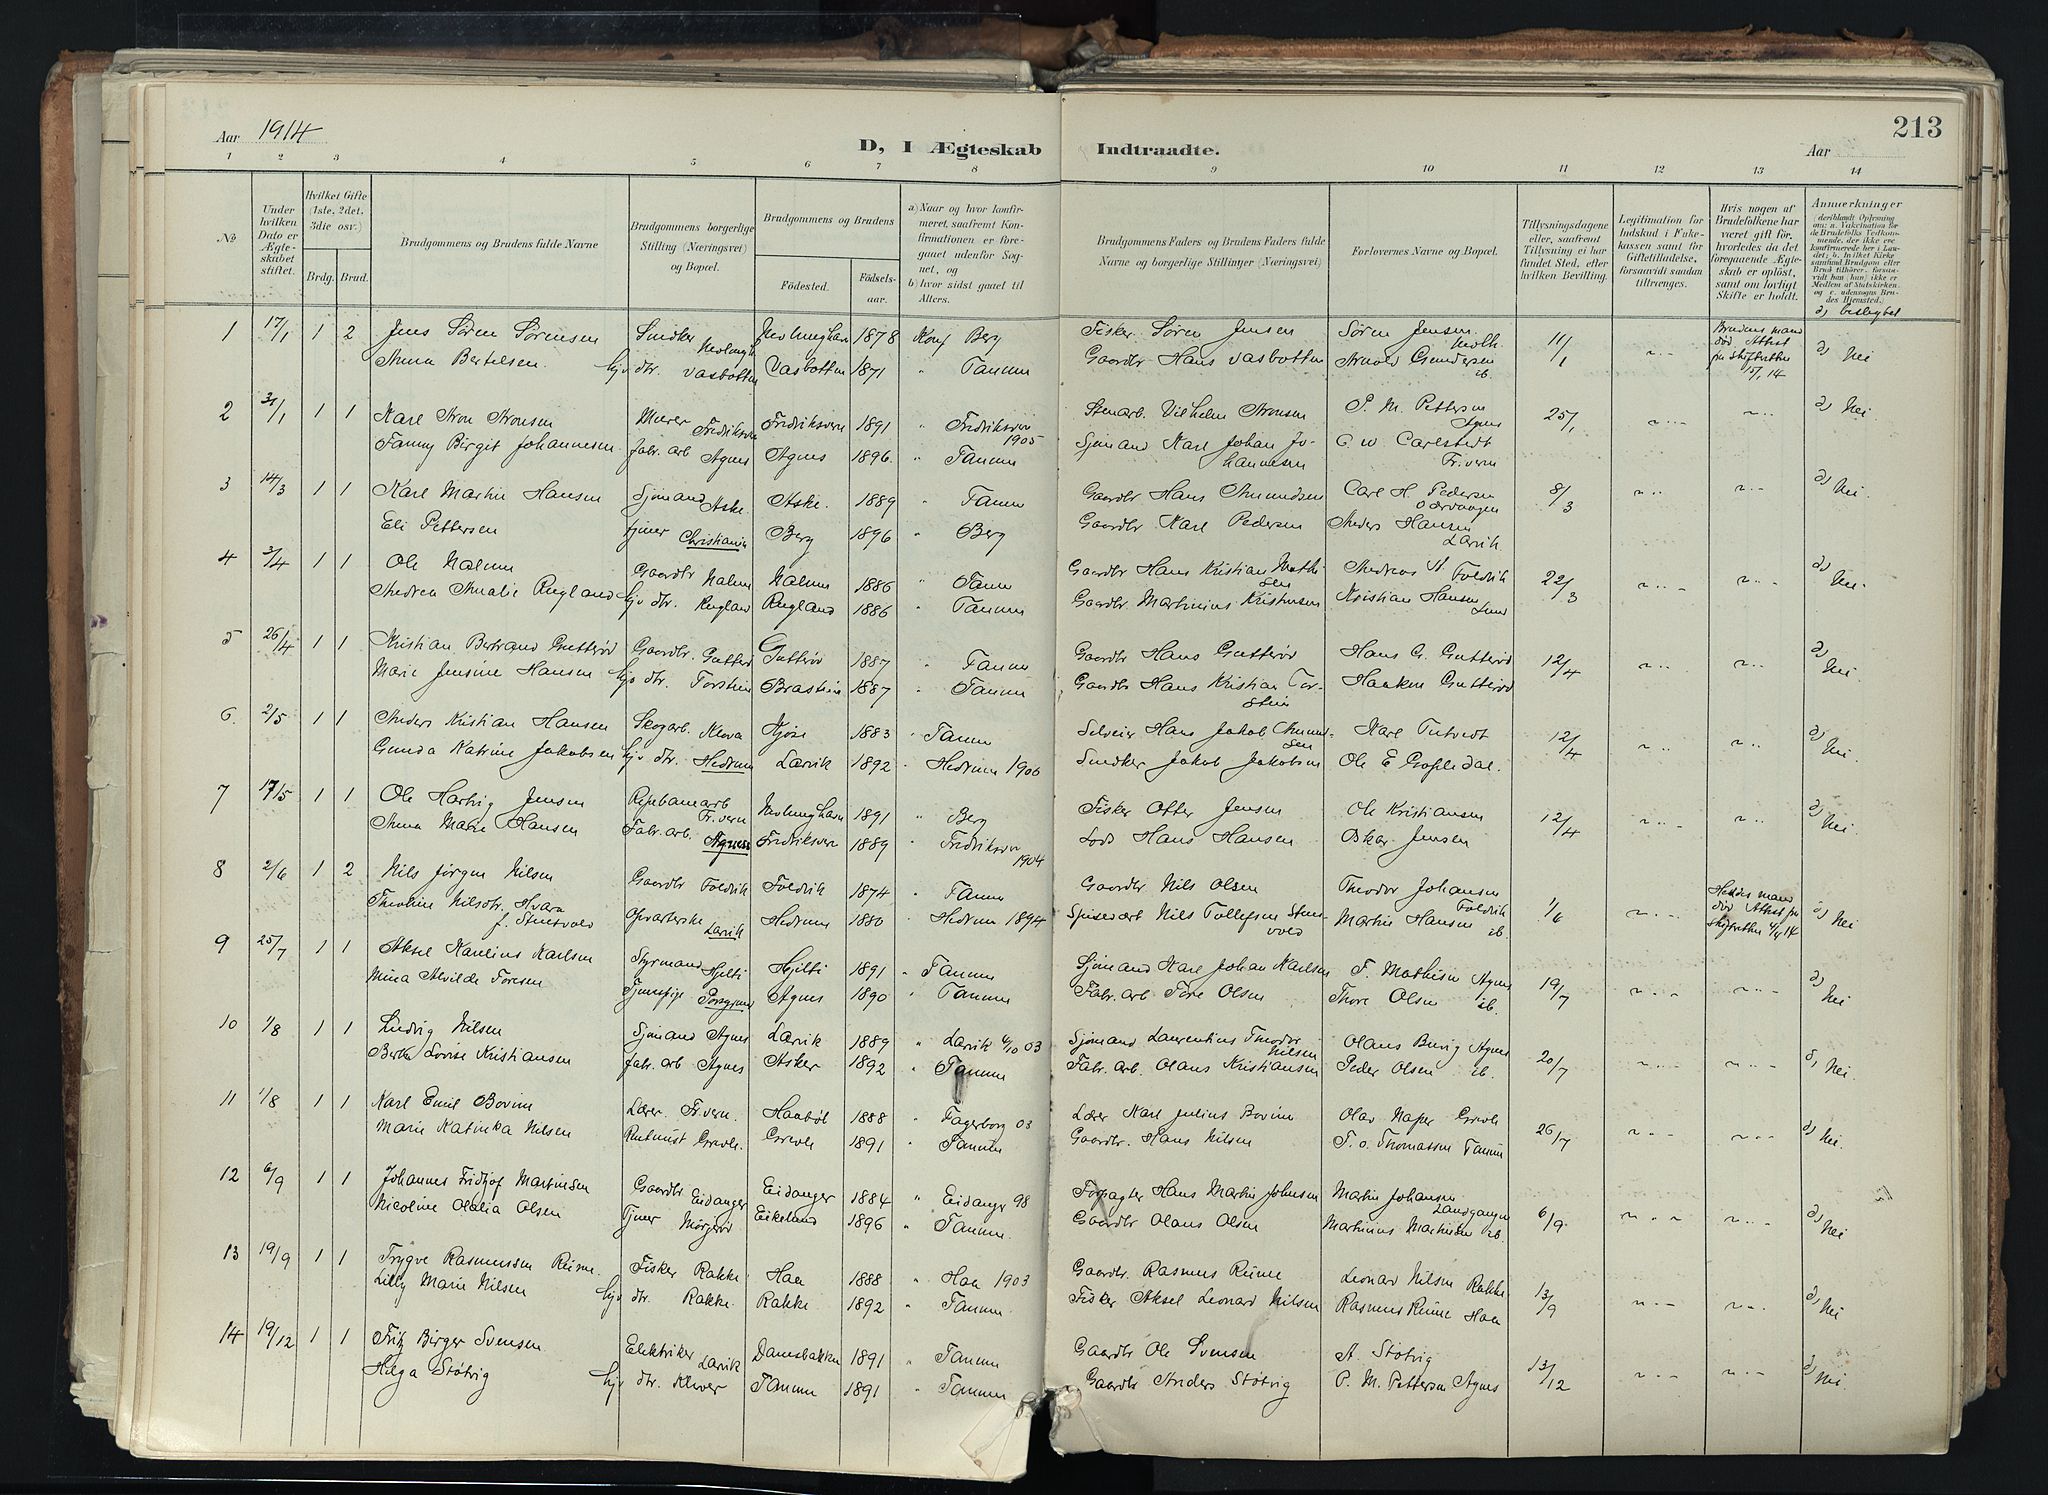 213
Aar 1914
D, I Ægteskab Indtraadte.
Aar
1 2 3 4 5 6 7 8 9 10 11 12 13 14
No
Under hvilken Dato er Ægteskabet stiftet.
Hvilket Gifte (1ste, 2det, 3die osv.)
Brdg. Brud.
Brudgommens og Brudens fulde Navne
Brudgommens borgerlige Stilling (Næringsvei) og Bopæl.
Brudgommens og Brudens
Fødested. Fødselsaar.
a) Naar og hvor konfirmeret, saafremt Konfirmationen er foregaaet udenfor Sognet, og
b) hvor sidst gaaet til Alters.
Brudgommens Faders og Brudens Faders fulde Navne og borgerlige Stillinger (Næringsvei)
Forlovernes Navne og Bopæl.
Tillysningsdagene eller, saafremt Tillysning ei har fundet Sted, efter hvilken Bevilling.
Legitimation for Indskud i Enkekassen samt for Giftetilladelse, forsaavidt saadan tiltrænges.
Hvis nogen af Brudefolkene har været gift før, hvorledes da det foregaaende Ægteskab er opløst, samt om lovligt Skifte er holdt.
Anmærkninger
d) beslegtet
1 17/1 1 2 Jens Søren Sørensen Smedker Nevlungh Nevlunghavn 1878 Konf Berg Fisker Søren Jensen Søren Jensen Nevlh. 11/1 Brudens mand død Attest fra Skifteretten 15/1 14 d) Nei
Anna Bertelsen hjv dtr. Vasbotten Vasbotten 1871 " Tanum Gaardbr Hans Vasbotten Arnold Gundersen ib.
2 31/1 1 1 Karl Aron Aronsen Murer Fredriksvern Fredriksvern 1891 " Fredriksvern 1905 Stenarb. Vilhelm Aronsen P. M. Pettersen Agnes 25/1 d) Nei
Fanny Birgit Johannesen fabr. arb Agnes Agnes 1896. " Tanum Sjømand Karl Johan Johannesen C. W. Carlstedt Fr.vern
3 14/3 1 1 Karl Martin Hansen Sjømand Aske Aske. 1889 " Tanum Gaardbr Hans Amundsen Carl H. Pedersen 8/3 d) Nei
Eli Pettersen tjener Christiania Berg 1896 " Berg Gaardbr Karl Pedersen Anders Hansen Larvik.
4 3/4 1 1 Ole Nalum Gaardbr Nalum Nalum 1886 " Tanum Gaardbr Hans Kristian Mathisen Andreas A. Foldvik 22/3 d) Nei
Andrea Amalie Rugland hjv dtr. Rugland Rugland 1886 " Tanum Gaardbr Martinius Kristensen Kristian Hansen Lund
5 26/4 1 1 Kristian Bertrand Gutterød Gaardbr. Gutterød Gutterød 1887 " Tanum Gaardbr Hans Gutterød Hans G. Gutterød 12/4 d) Nei.
Marie Jensine Hansen hjv dtr. Torstein 1887 " Tanum Gaardbr Hans Kristian Torstein Haaken Gutterød
6. 2/5 1 1 Anders Kristian Hansen Skogarb. Klova Kjøse 1883 " Tanum Selveier Hans Jakob Amundsen Karl Tutvedt 12/4 d) Nei.
Gunda Katrine Jakobsen hjv dtr. Hedrum Larvik 1892 " Hedrum 1906 Smedker Jakob Jakobsen Ole E
7 17/5 1 1 Ole Hartvig Jensen Repbanearb Fr.vern Nevlunghavn 1891 " Berg Fisker Otter Jensen Ole Kristiansen 12/4 d) Nei
Anna Marie Hansen Fabr. arb. Agnes Fredriksvern 1889 " Fredriksvern 1904 Lods Hans Hansen Oskar Jensen
8 2/6 1 2 Nils Jørgen Nilsen Gaardbr Foldvik Foldvik 1874 " Tanum Gaardbr Nils Olsen Theodor Johansen Foldvik 1/6 Hendes mand død Attest fra Skifteretten 14 d) Nei
Theoline Nilsdtr. Hvara f. Stensvold Opvarterske Larvik Hedrum 1880 " Hedrum 1894 Spisevært Nils Tollefsen Stensvold Martin Hansen ib.
9 25/7 1 1 Aksel Paulius Karlsen Styrmand Hjelti Hjelti 1891 " Tanum Sjømand Karl Johan Karlsen F. Mathisen Agnes 19/7 d) Nei
Mina Alvilde Toresen Tjenestpige Porsgrund Agnes 1890 " Tanum Fabr. arb Tore Olsen Thore Olsen ib.
10 1/8 1 1 Ludvig Nilsen Sjømand Agnes Larvik 1889 " Larvik 4/10 03 Sjømand Laurentius Theodor Nilsen Olaus Buvig Agnes 20/7 d) Nei.
Berthe Lovise Kristiansen fabr. arb Agnes Asker 1892 " Tanum Fabr. arb. Olaus Kristiansen Peder Olsen ib.
11 1/8 1 1 Karl Emil Bovim Lærer Fr.vern. Haabøl 1888 " Fagerborg 03 Lærer Karl Julius Bovim Olav Naper Grevle 26/7 d) Nei.
Marie Katinka Nilsen Grevle. Grevle 1891 " Tanum Gaardbr. Hans Nilsen T. O. Thomassen Tanum
12 6/9 1 1 Johannes Fridtjof Martinsen Gaardbr Eidanger Eidanger 1884 " Eidanger 98 Forpagter Hans Martin Johnsen Martin Johansen Landgangen 6/9 d) Nei
Nicoline Olalia Olsen Tjener Mørjerød Eikeland 1896 " Tanum. Gaardbr Olaus Olsen Martinius Martinsen ib.
13 19/9 1 1 Trygve Rasmussen Reime Fisker Rakke Haa 1888 " Haa 1903 Gaardbr. Rasmus Reime Leonard Nilsen Rakke 13/9 d) Nei
Lilly Marie Nilsen hjv dtr. Rakke. Rakke 1892 " Tanum Fisker Aksel Leonard Nilsen Rasmus Reime Haa
14 19/12 1 1 Fritz Birger Svensen Elektriker Larvik Damsbakken 1891 " Tanum Gaardbr Ole Svensen A. Støtvig 13/12 d) Nei
Helga Støtvig hjv dtr. Klever Tanum 1891 " Tanum Gaardbr Anders Støtvig P. M. Pettersen Agnes